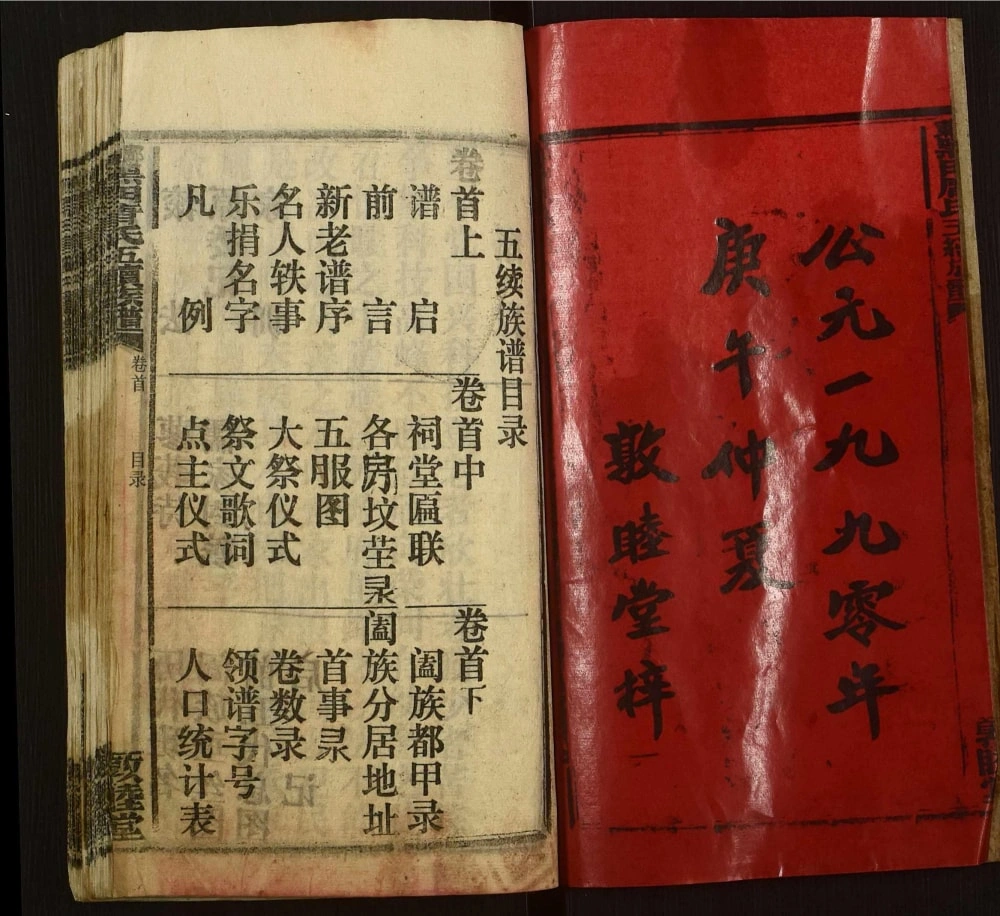 公元一九九零年
庚午仲夏
敦睦堂梓
五续族谱目录
卷首上
谱启
前言
新老谱序
名人轶事
乐捐名字
凡例
卷首中
祠堂匾联
各房坟茔录
五服图
大祭仪式
祭文歌词
点主仪式
卷首下
阖族都甲录
阖族分居地址
首事录
卷数录
领谱字号
人口统计表
氏五續族譜
卷首
目录
敦睦堂